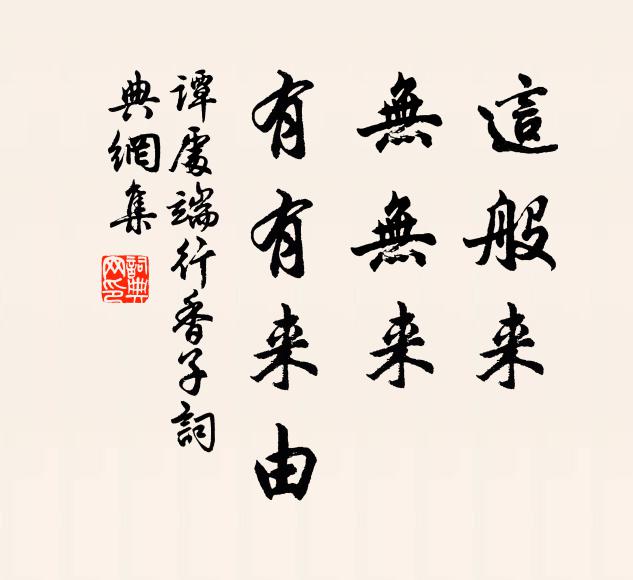 這般来
無無来
有有来由
譚處端行香子詞
典網集
詞典网印